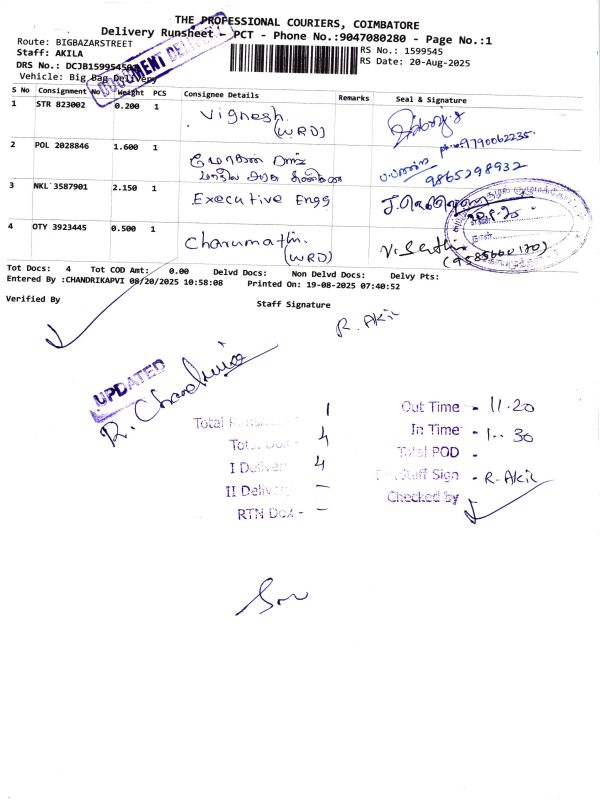 THE PROFESSIONAL COURIERS, COIMBATORE
Delivery Runsheet - PCT - Phone No.:9047080280 - Page No.:1
Route: BIGBAZARSTREET
RS No.: 1599545
Staff: AKILA
RS Date: 20-Aug-2025
DRS No.: DCJB1599545
Vehicle: Big Bag Delivery
DOCUMENT DELIVERY
S No Consignment No Weight PCS Consignee Details Remarks Seal & Signature
1 STR 823002 0.200 1 Vignesh. (WRD)
ph:9790062235.
2 POL 2028846 1.600 1
9865298932
3 NKL 3587901 2.150 1 Executive Engg
20.8.25
4 QTY 3923445 0.500 1 Charumathi. (WRD)
V. Senthi
(9585660170)
Tot Docs: 4 Tot COD Amt: 0.00 Delvd Docs: Non Delvd Docs: Delvy Pts:
Entered By :CHANDRIKAPVI 08/20/2025 10:58:08 Printed On: 19-08-2025 07:40:52
Verified By Staff Signature
R. Akil
UPDATED
R. Chandrika
Total 1
Out Time - 11.20
Total Dox - 4
In Time - 1.. 30
I Delivery 4
Total POD -
II Delivery -
Staff Sign - R. Akil
RTN Dox - -
Checked by